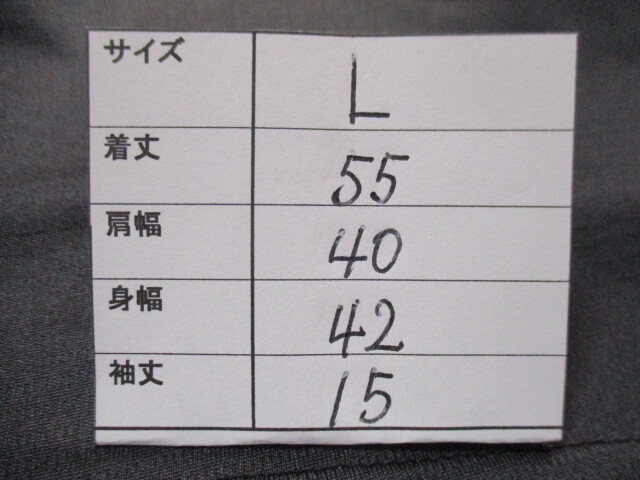 サイズ L
着丈 55
肩幅 40
身幅 42
袖丈 15